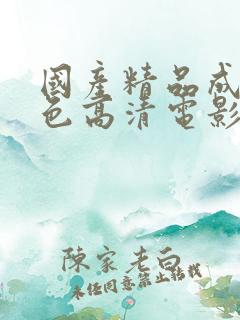 國產精品成
色高清電影
陳家老白
未经同意禁止转载